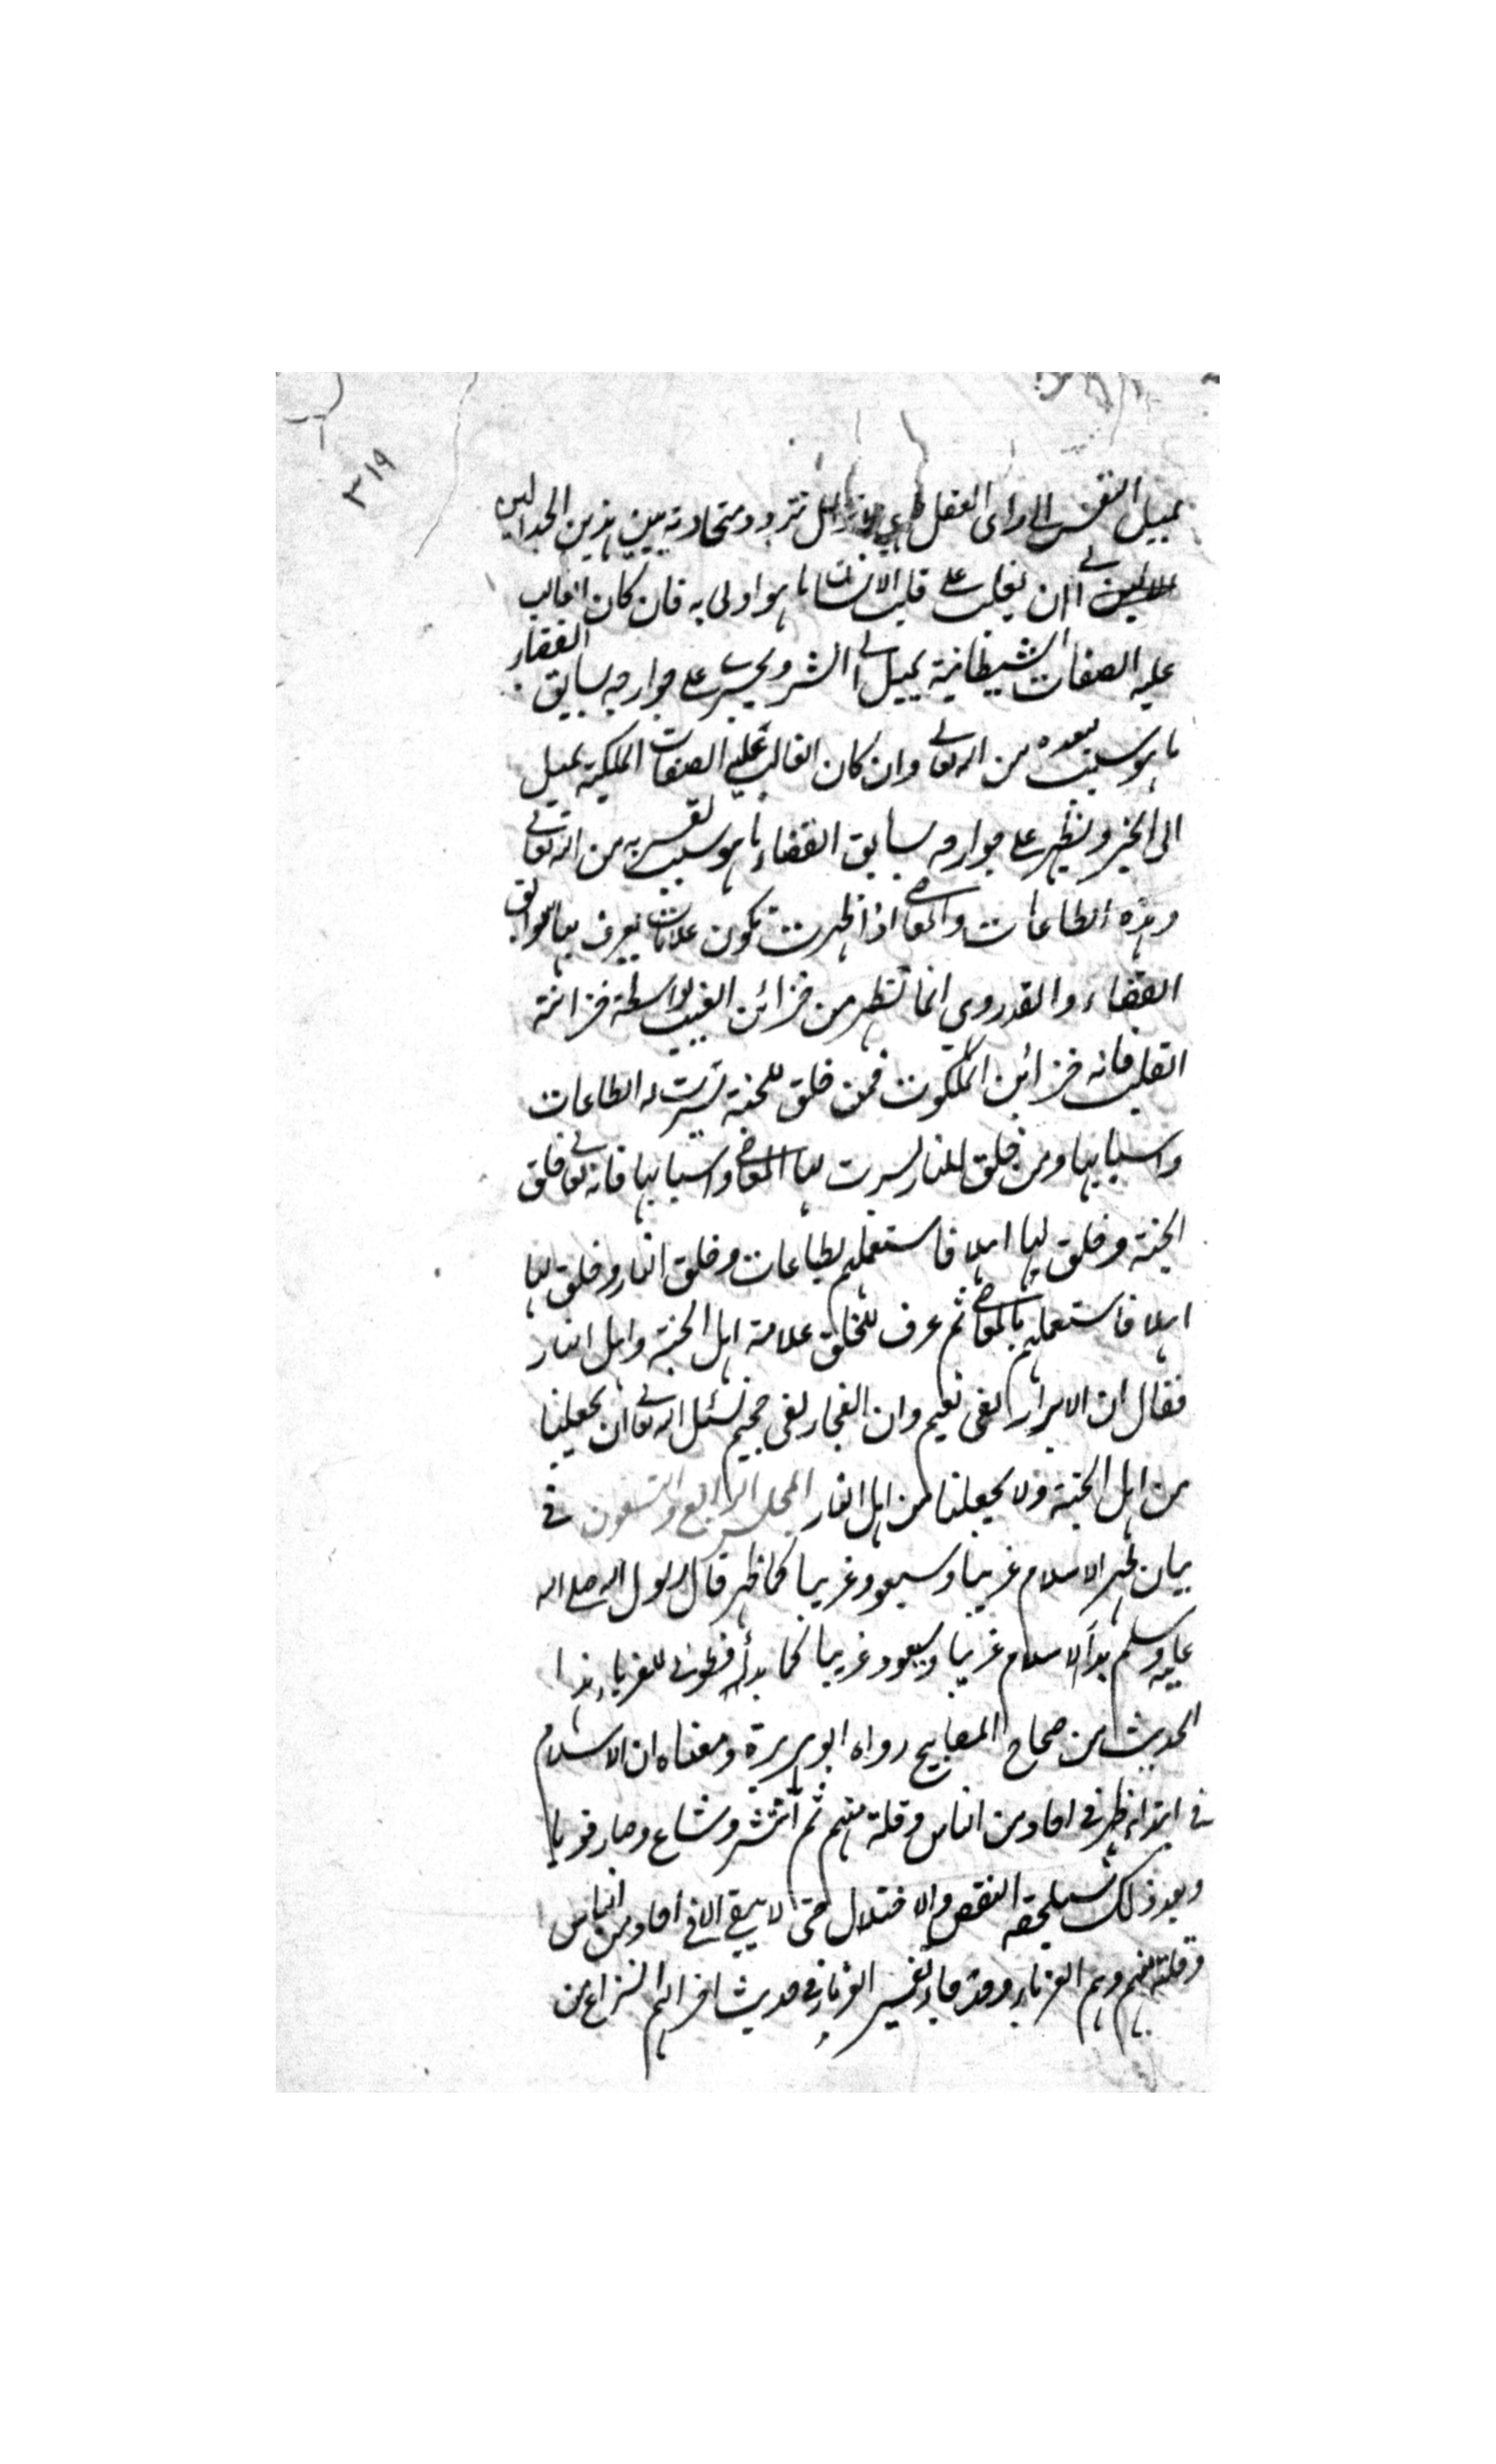 ٣١٩
يميل النفس الى راى العقل تتردد متحادثة بين هذين الجدالين
الى ان يغلب على قلب الانسان ما هو اولى به فان كان الغالب
عليه الصفات الشيطانية يميل الى الشر ويجرى على جوارحه بسابق القضاء
ما هو سبب بعده من الله تعالى وان كان الغالب عليه الصفات الملكية يميل
الى الخير ويظهر على جوارحه بسابق القضاء ما هو سبب لقربه من الله تعالى
وهذه الطاعات والمعاصى اذا ظهرت تكون علامات يعرف بها سوابق
القضاء والقدر وهى انما تظهر من خزائن الغيب بواسطة خزانة
القلب فانه خزائن الملكوت فمن خلق للجنة يسرت له الطاعات
واسبابها ومن خلق للنار يسرت لها المعاصى واسبابها فانه تعالى خلق
الجنة وخلق لها اهلا فاستعملهم بطاعات وخلق النار وخلق لها
اهلا فاستعملهم بالمعاصى ثم عرف للخلق علامة اهل الجنة واهل النار
فقال ان الابرار لفى نعيم وان الفجار لفى جحيم نسئل الله تعالى ان يجعلنا
من اهل الجنة ولا يجعلنا من اهل النار المجلس الرابع والتسعون فى
بيان ظهر الاسلام غريبا وسيعود غريبا كما ظهر قال رسول الله صلى الله
عليه وسلم بدأ الاسلام غريبا وسيعود غريبا كما بدأ فطوبى للغرباء هذا
الحديث من صحاح المصابيح رواه ابو هريرة ومعناه ان الاسلام
فى ابتدائه ظهر فى احاد من الناس وقلة منهم ثم انتشر وشاع وصار قويا
وبعد ذلك سيلحقه النقص والاختلال حتى لا يبقى الا فى احاد من الناس
وقلة منهم وهم الغرباء وقد جاء تفسير الغرباء فى حديث اخر انهم النزاع من